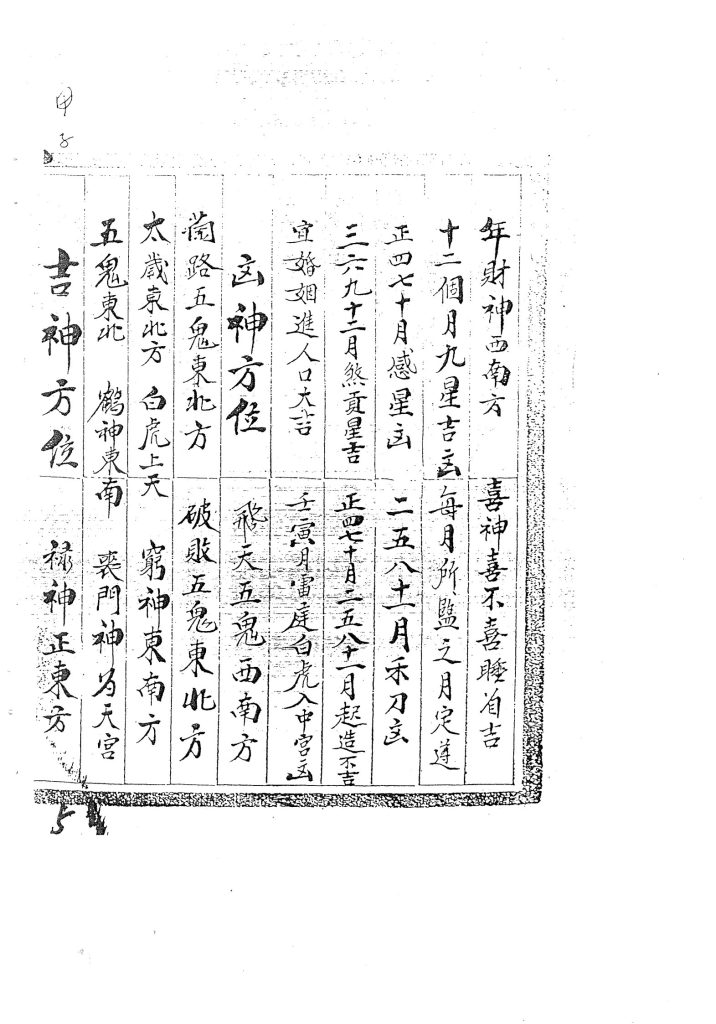 甲子
年財神西南方　喜神喜不喜睡自吉
十二個月九星吉凶　每月所監之月定遵
正四七十月感星凶　二五八十一月禾刀凶
三六九十二月煞貢星吉　正四七十月二五八十一月起造不吉
宜婚姻進人口大吉　壬寅月雷庭白虎入中宮凶
凶神方位　飛天五鬼西南方
路五鬼東北方　破敗五鬼東北方
太歲東北方　白虎上天　窮神東南方
五鬼東北　鶴神東南　喪門神為天宮
吉神方位　祿神正東方
5